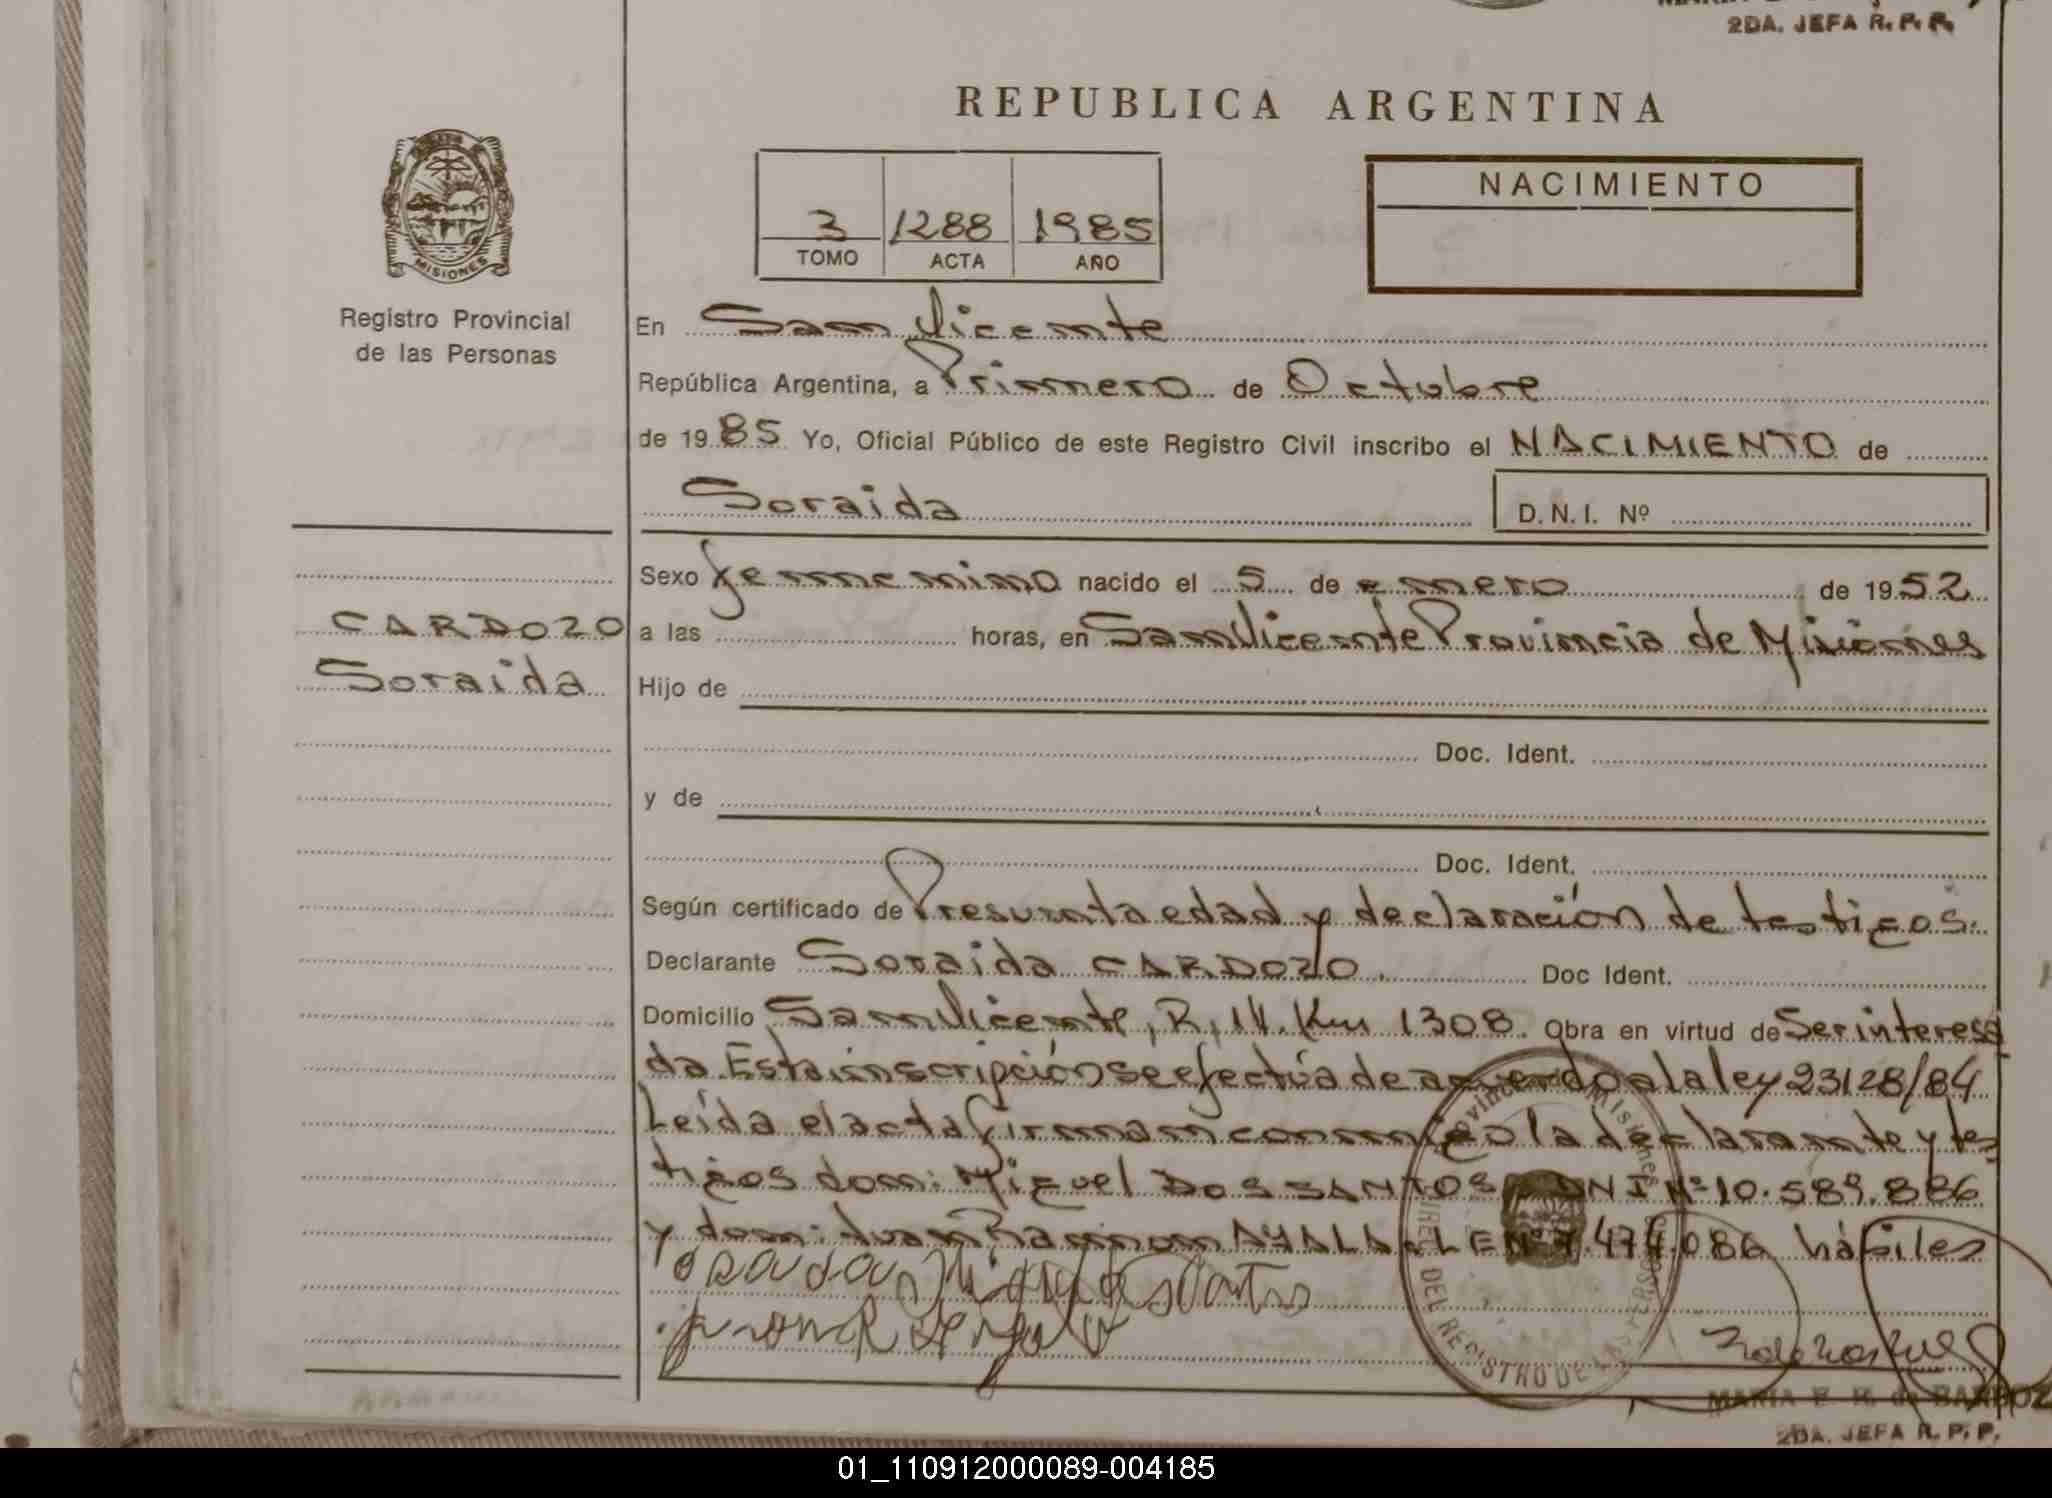 2DA. JEFA R. P. P.
REPUBLICA ARGENTINA
MISIONES
Registro Provincial
de las Personas
3 1288 1985
TOMO ACTA AÑO
NACIMIENTO
En San Vicente
República Argentina, a Primero de Octubre
de 1985 Yo, Oficial Público de este Registro Civil inscribo el NACIMIENTO de
Soraida D.N.I. Nº
Sexo femenino nacido el 5 de enero de 1952
CARDOZO
Soraida
a las horas, en San Vicente Provincia de Misiones
Hijo de
Doc. Ident.
y de
Doc. Ident.
Según certificado de Presunta edad y declaración de testigos.
Declarante Soraida CARDOZO. Doc Ident.
Domicilio San Vicente, R, 14. Km 1308. Obra en virtud de Ser interesa
da. Esta inscripción se efectúa de acuerdo a la ley 23128/84
Leída el acta firman conmigo la declarante y tes
tigos don: Miguel DOS SANTOS DNI Nº 10.589.886
y don: Juan Ramon AYALA LE Nº 7.474.086 hábiles
MARIA E. K. de BARBOZ
2DA. JEFA R. P. P.
01_110912000089-004185